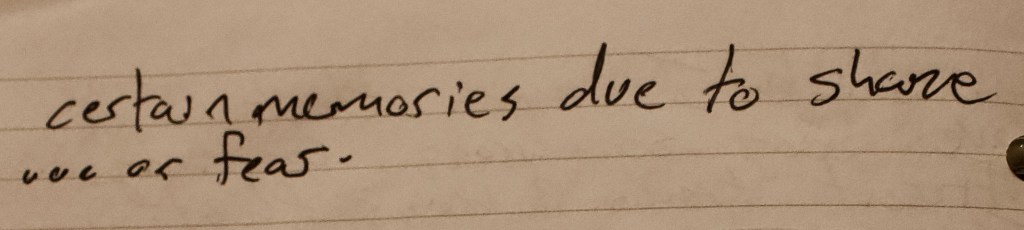 certain memories due to shame
or fear.